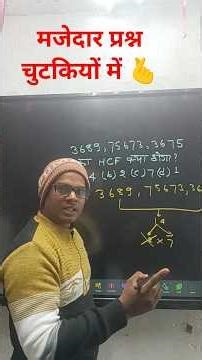 मजेदार प्रश्न
चुटकियों में
3689, 75673, 3675
का HCF क्या होगा?
4 (b) 2 (c) 7 (d) 1
3689, 75673, 36